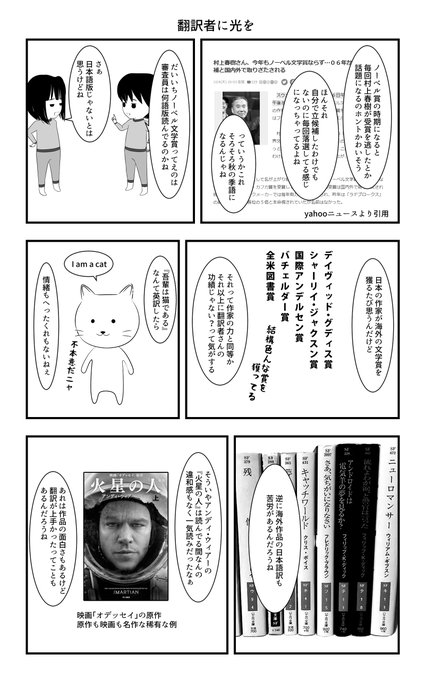 翻訳者に光を
ノーベル賞の時期になると
毎回村上春樹が受賞を逃したとか
話題になるのホントかわいそう
ほんそれ
自分で立候補したわけでも
ないのに毎回落選してる感じ
になっちゃってるよね
っていうかこれ
そろそろ秋の季語に
なるんじゃね
村上春樹さん、今年もノーベル文学賞ならず
補と国内外で取りざたされる
yahooニュースより引用
だいいちノーベル文学賞ってえのは
審査員は何語版読んでるのかね
さあ
日本語版じゃないとは
思うけどね
日本の作家が海外の文学賞を
獲るたび思うんだけど
デイヴィッド・グディス賞
シャーリイ・ジャクスン賞
国際アンデルセン賞
バチェルダー賞
全米図書賞
結構色んな賞を
獲ってる
それって作家の力と同等か
それ以上に翻訳者さんの
功績じゃない?って気がする
『吾輩は猫である』
なんて英訳したら
I am a cat
情緒もへったくれもないねぇ
不本意だニャ
逆に海外作品の日本語訳も
苦労があるんだろうね
ニューロマンサー
ウィリアム・ギブスン
アンドロイドは
電気羊の夢を見るか?
フィリップ・K・ディック
さあ、気ちがいになりなさい
フレドリック・ブラウン
キャッチワールド
クリス・ボイス
そういやアンディ・ウィアーの
『火星の人』は読んでる間なんの
違和感もなく一気読みだったなぁ
火星の人
アンディ・ウィアー
上
MARTIAN
あれは作品の面白さもあるけど
翻訳が上手かったってことも
あるんだろうね
映画「オデッセイ」の原作
原作も映画も名作な稀有な例